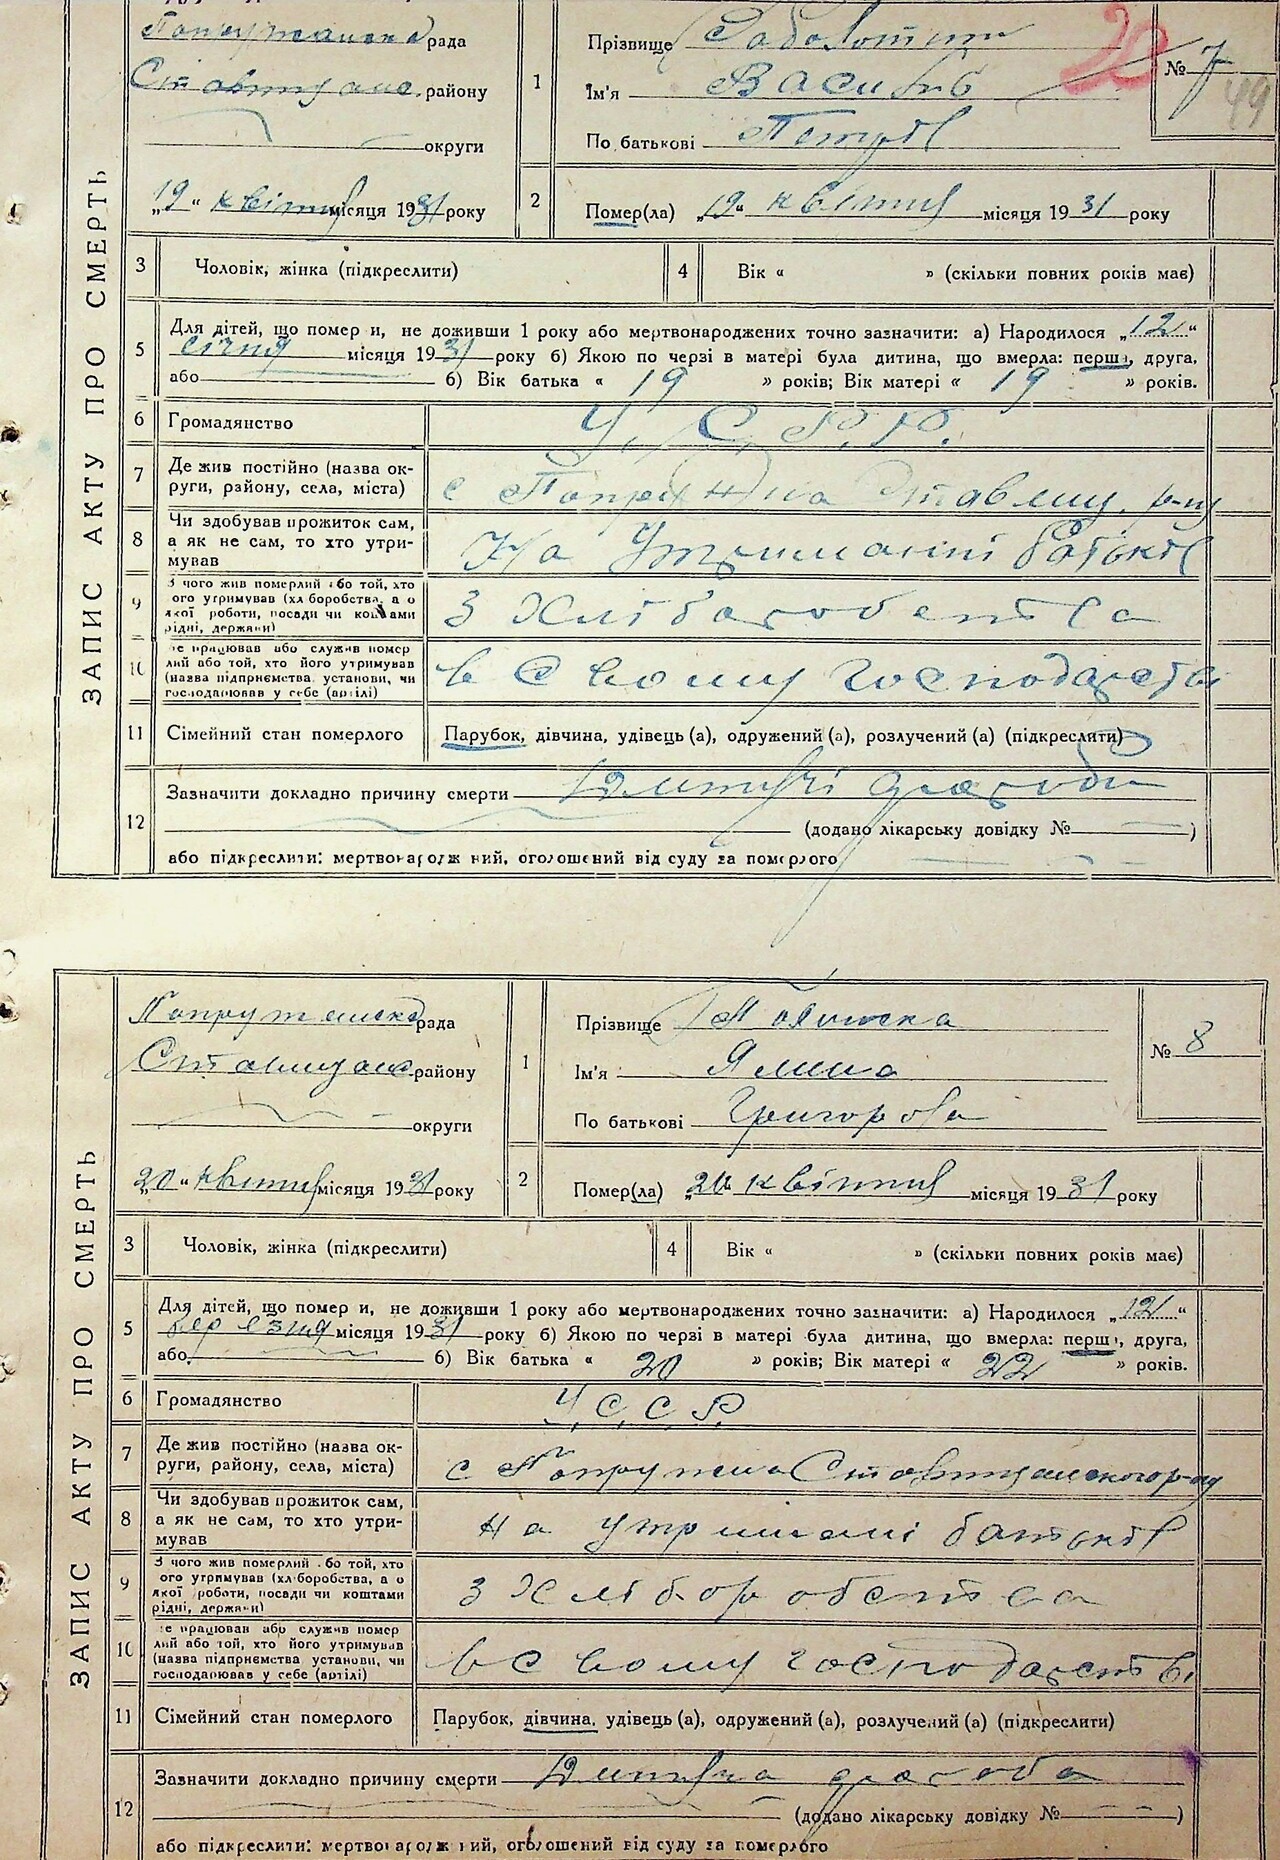 ЗАПИС АКТУ ПРО СМЕРТЬ
рада
району
округи
„19“ квітня місяця 1931 року
1
Прізвище
Ім'я Василь
По батькові Петрів
20
№ 7
49
2
Помер(ла) „19“ квітня місяця 1931 року
3 Чоловік, жінка (підкреслити)
4 Вік « » (скільки повних років має)
5 Для дітей, що померли, не доживши 1 року або мертвонароджених точно зазначити: а) Народилося „12“
січня місяця 1931 року б) Якою по черзі в матері була дитина, що вмерла: перша, друга,
або б) Вік батька « 19 » років; Вік матері « 19 » років.
6 Громадянство У.С.Р.Р.
7 Де жив постійно (назва округи, району, села, міста) с
8 Чи здобував прожиток сам,
а як не сам, то хто утримував
На утриманні батьків
9 З чого жив померлий або той, хто
ого утримував (хліборобства, а о
якої роботи, посади чи коштами
рідні, держави)
З Хліборобства
10 де працював або служив померлий або той, хто його утримував
(назва підприємства установи, чи
господарював у себе (артілі)
в Свому господарстві
11 Сімейний стан померлого Парубок, дівчина, удівець (а), одружений (а), розлучений (а) (підкреслити)
12 Зазначити докладно причину смерти
(додано лікарську довідку № )
або підкреслити: мертвонароджений, оголошений від суду за померлого
ЗАПИС АКТУ ПРО СМЕРТЬ
рада
району
округи
„20“ квітня місяця 1931 року
1
Прізвище
Ім'я
По батькові Григорова
№ 8
2
Помер(ла) квітня місяця 1931 року
3 Чоловік, жінка (підкреслити)
4 Вік « » (скільки повних років має)
5 Для дітей, що померли, не доживши 1 року або мертвонароджених точно зазначити: а) Народилося „12“
березня місяця 1931 року б) Якою по черзі в матері була дитина, що вмерла: перша, друга,
або б) Вік батька « 20 » років; Вік матері « 22 » років.
6 Громадянство У.С.С.Р.
7 Де жив постійно (назва округи, району, села, міста) с
8 Чи здобував прожиток сам,
а як не сам, то хто утримував
на утримані батьків
9 З чого жив померлий або той, хто
ого утримував (хліборобства, а о
якої роботи, посади чи коштами
рідні, держави)
З Хліборобства
10 де працював або служив померлий або той, хто його утримував
(назва підприємства установи, чи
господарював у себе (артілі)
в Свому господарстві
11 Сімейний стан померлого Парубок, дівчина, удівець (а), одружений (а), розлучений (а) (підкреслити)
12 Зазначити докладно причину смерти
(додано лікарську довідку № )
або підкреслити: мертвонароджений, оголошений від суду за померлого